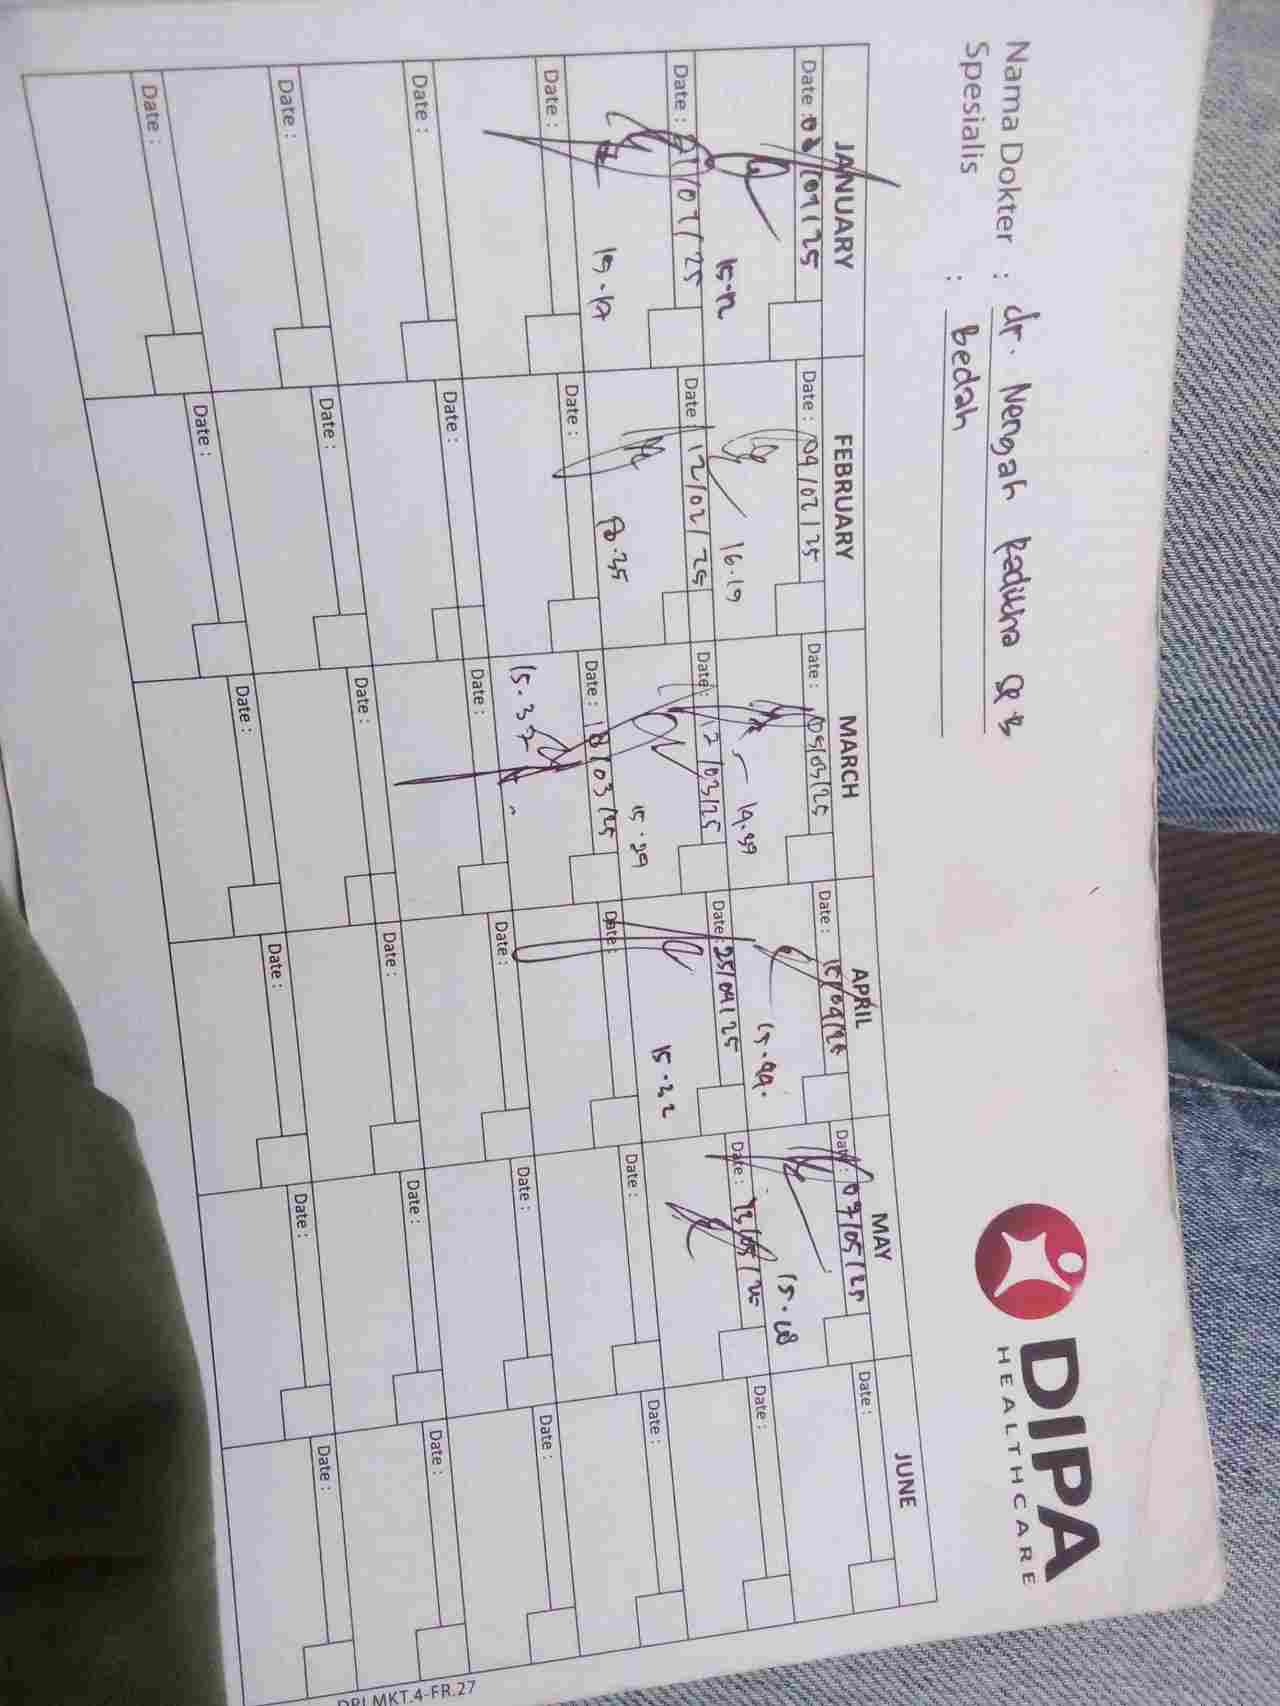 DIPA
HEALTHCARE
Nama Dokter : dr. Nengah
Spesialis : Bedah
JANUARY FEBRUARY MARCH APRIL MAY JUNE
Date : /01/25 Date : 04/02/25 Date : 05/03/25 Date : 15/04/25 Date : 07/05/25 Date :
15.12 16.19 14.39 15.44. 15.28
Date : 21/01/25 Date : 12/02/25 Date : 12/03/25 Date : 25/04/25 Date : 13/05/25 Date :
15.17 15.29 15.32
Date : Date : Date : 18/03/25 Date : Date : Date :
15.37
Date : Date : Date : Date : Date : Date :
Date : Date : Date : Date : Date : Date :
Date : Date : Date : Date : Date : Date :
DPI.MKT.4-FR.27